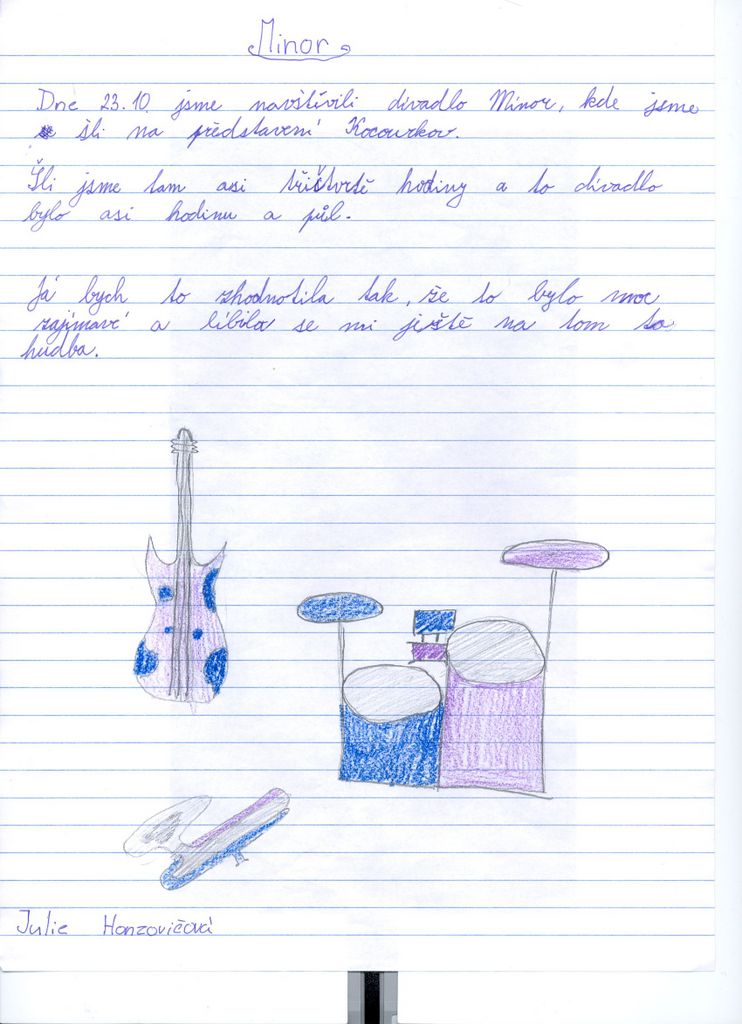 Minor
Dne 23.10. jsme navštívili divadlo Minor, kde jsme
šli na představení Kocourkov.
Šli jsme tam asi třičtvrtě hodiny a to divadlo
bylo asi hodinu a půl.
Já bych to zhodnotila tak, že to bylo moc
zajímavé a líbila se mi ještě na tom ta
hudba.
Julie Honzovičová